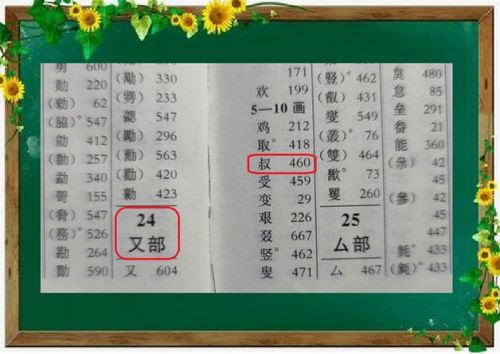 勇 600
勣 220
(勑) 62
(脇)° 547
勍 412
(勌) 257
勐 340
哿 155
(脅) 547
(務)° 526
勘 264
勚 590
(勱) 330
(勥) 233
勰 547
(勵) 296
(勳) 563
(勸) 420
勷 423
24
又部
又 604
171
欢 199
5—10 画
鸡 212
取° 418
叔 460
受 459
变 29
艰 226
叕 667
竖° 462
叟 471
(豎)° 462
(叡) 431
燮 549
(叢)° 76
(雙) 464
歠° 73
矍 260
25
厶部
厶 467
炱 480
怠 85
垒 291
畚 21
能 360
(叅) 42
45
(參) 42
45
447
毵° 433
(毿)° 433